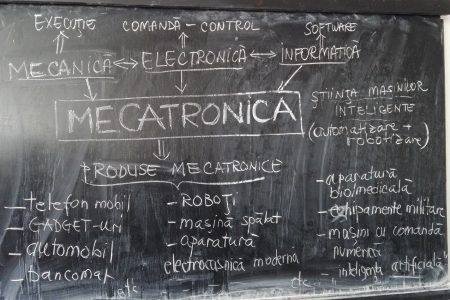 EXECUȚIE COMANDĂ - CONTROL SOFTWARE
MECANICĂ ELECTRONICĂ INFORMATICĂ
MECATRONICA
ȘTIINȚA MAȘINILOR
INTELIGENTE
(automatizare +
robotizare)
PRODUSE MECATRONICE
- telefon mobil
- GADGET-uri
- automobil
- bancomat
etc
- ROBOȚI
- mașină spălat
- aparatură
electrocasnică modernă
etc
- aparatură
biomedicală
- echipamente militare
- mașini cu comandă
numerică
- inteligență artificială